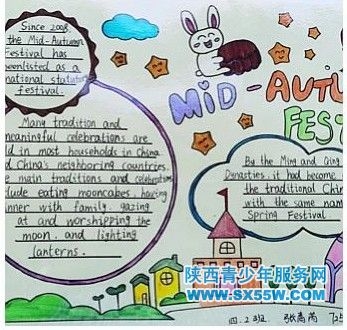 Since 2008
the Mid-Autumn
Festival has
been listed as a
national statutory
festival.
MID-AUTU
FEST
Many tradition and
meaningful celebrations are
ld in most households in China
d China's neighboring countries.
e main traditions and celebrations
clude eating mooncakes, having
nner with family, gazing
at and worshipping the
moon, and lighting
lanterns.
By the Ming and Qing
Dynasties, it had become
the traditional Chin
with the same nam
Spring Festival
四.2班
陕西青少年服务网
WWW.SX55W.COM